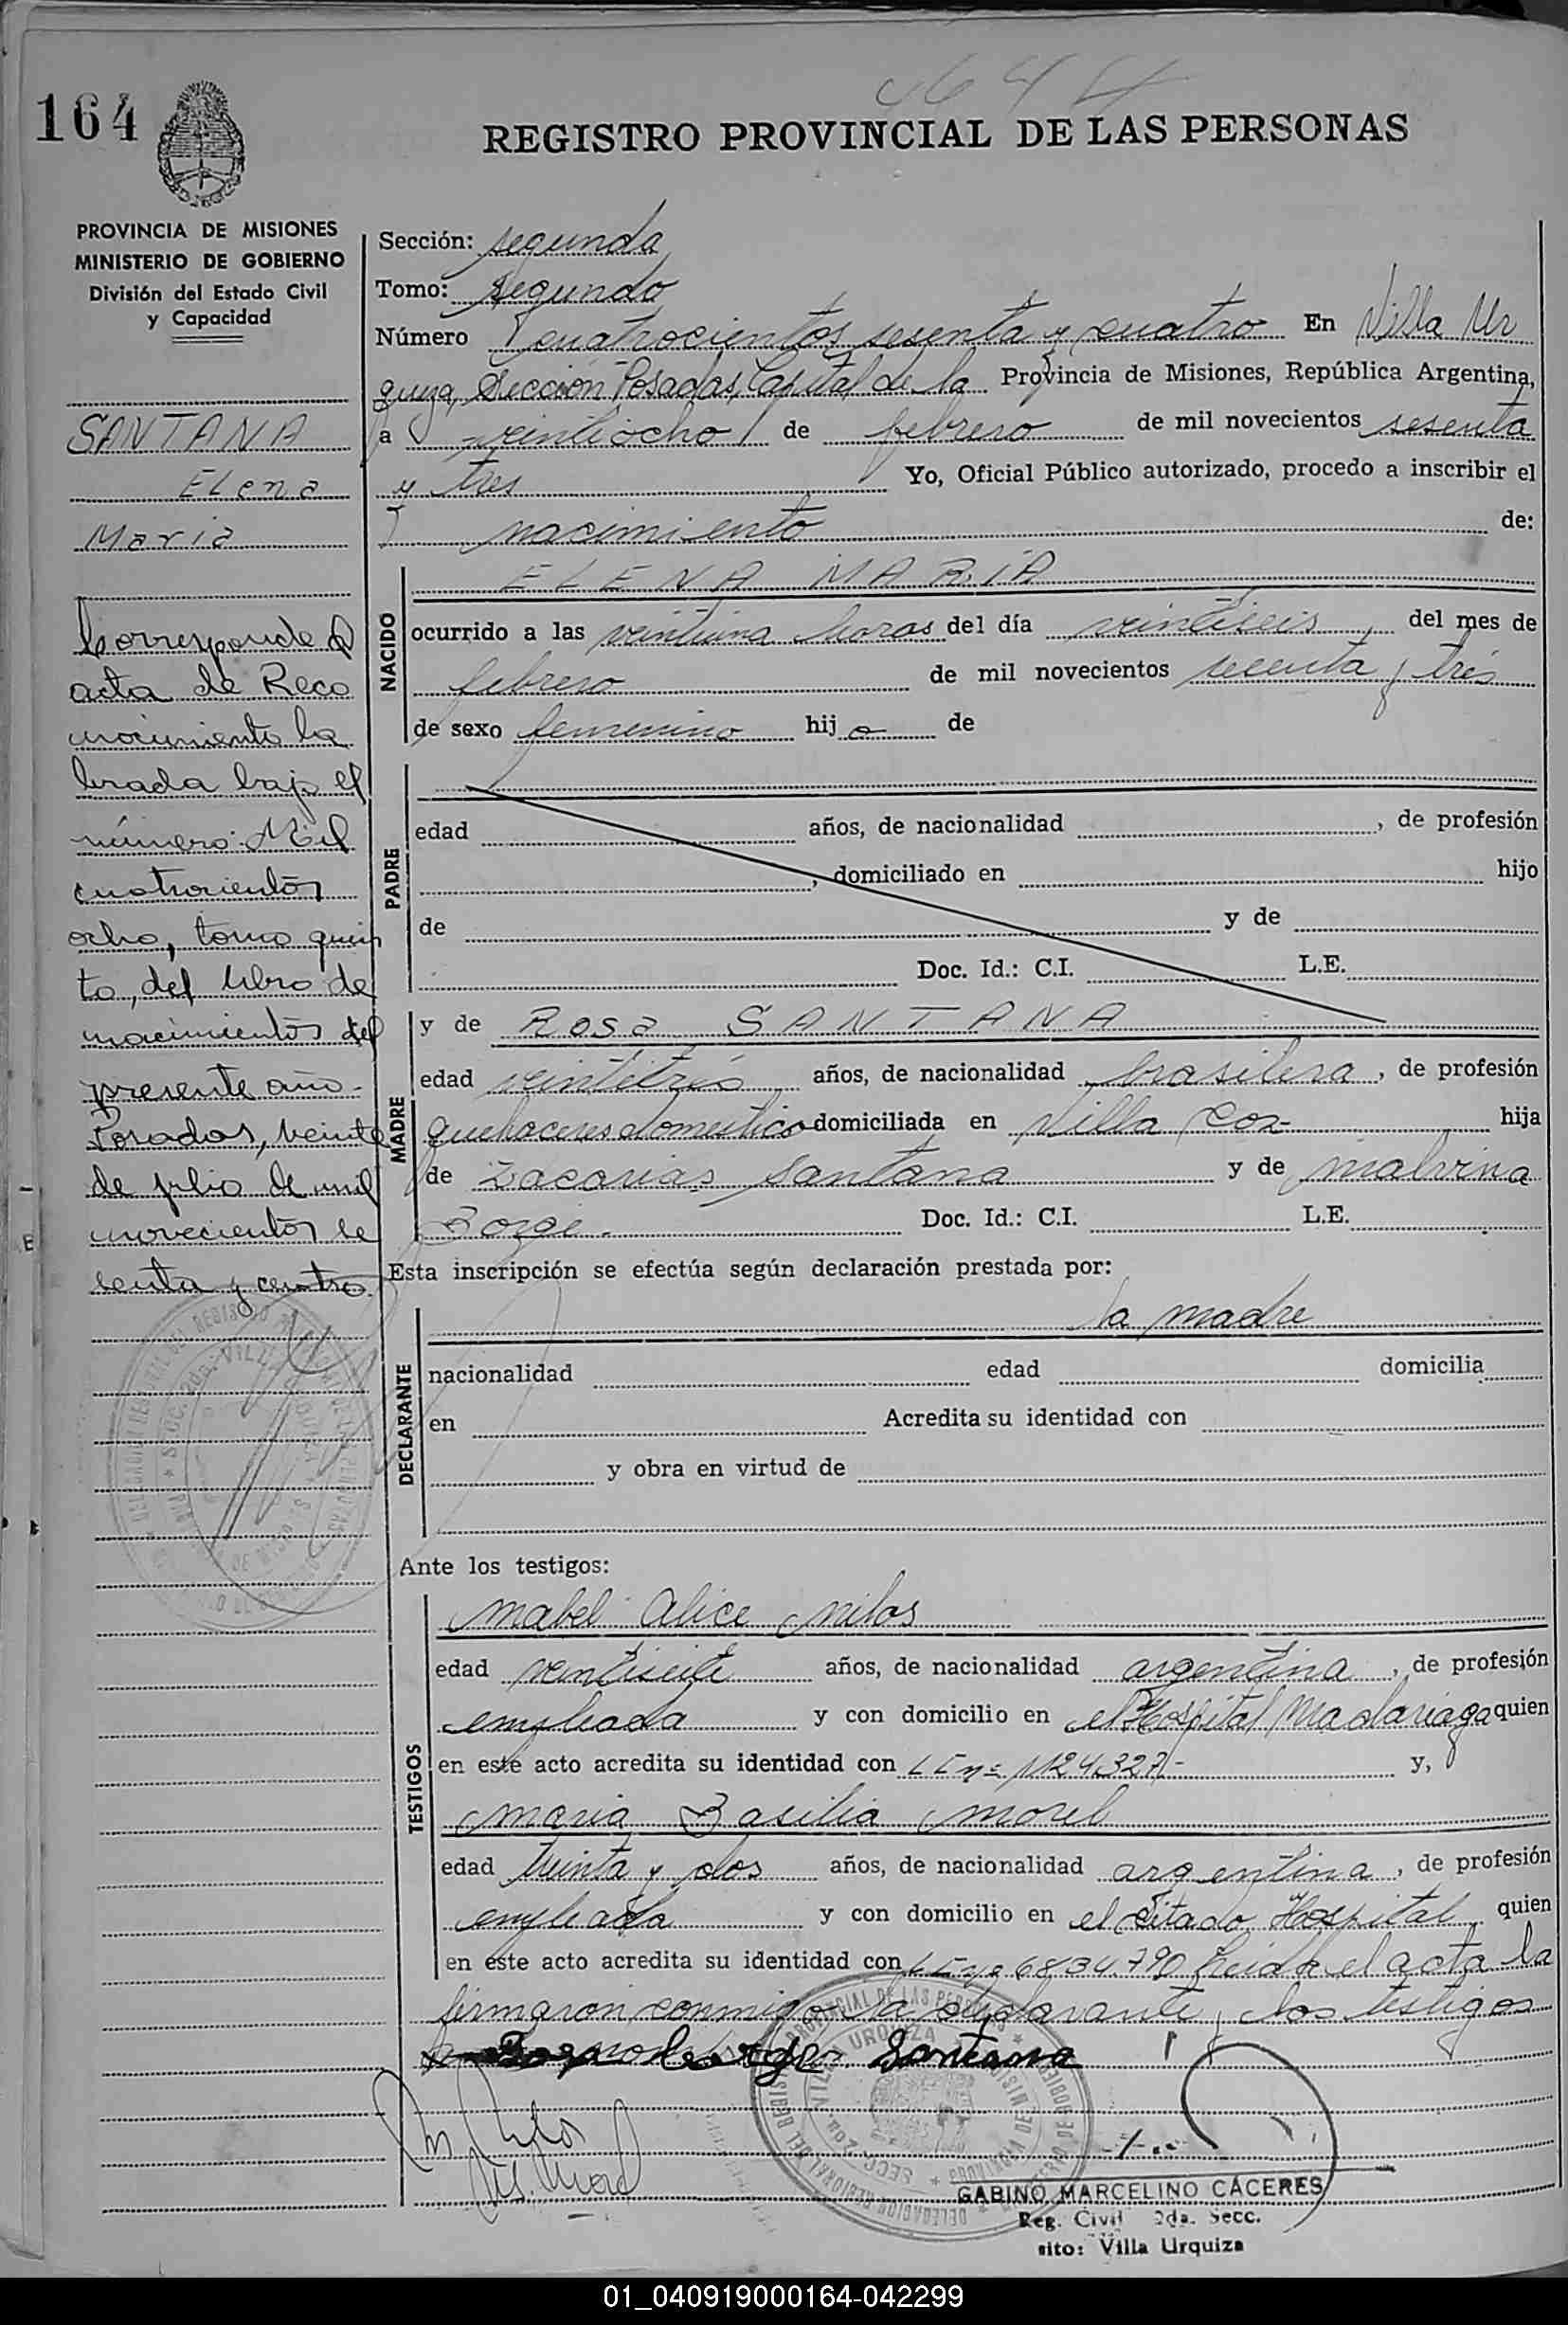 164
REGISTRO PROVINCIAL DE LAS PERSONAS
PROVINCIA DE MISIONES
MINISTERIO DE GOBIERNO
División del Estado Civil
y Capacidad
SANTANA
Elena
Maria
Corresponde a
acta de Reco
nocimiento la
brada bajo el
número: Mil
cuatrocientos
ocho, tomo quin
to, del libro de
nacimientos del
presente año.
Posadas, veinte
de julio de mil
novecientos se
senta y cuatro.
Sección: segunda
Tomo: segundo
Número cuatrocientos sesenta y cuatro En Villa Ur
quiza, Sección Posadas, Capital de la Provincia de Misiones, República Argentina,
a veintiocho de febrero de mil novecientos sesenta
y tres Yo, Oficial Público autorizado, procedo a inscribir el
nacimiento de:
NACIDO
ELENA MARÍA
ocurrido a las veintiuna horas del día veintiseis, del mes de
febrero de mil novecientos sesenta y tres
de sexo femenino hija de
PADRE
edad años, de nacionalidad , de profesión
, domiciliado en hijo
de y de
Doc. Id.: C.I. L.E.
MADRE
y de Rosa SANTANA
edad veintitrés años, de nacionalidad brasilera, de profesión
quehaceres domestico domiciliada en Villa Cox hija
de Zacarias Santana y de malvina
Borge. Doc. Id.: C.I. L.E.
Esta inscripción se efectúa según declaración prestada por:
DECLARANTE
la madre
nacionalidad edad domicilia
en Acredita su identidad con
y obra en virtud de
Ante los testigos:
TESTIGOS
Mabel Alice Milos
edad ventisiete años, de nacionalidad argentina, de profesión
empleada y con domicilio en el Hospital Madariaga quien
en este acto acredita su identidad con LC nº 1124.327- y,
Maria Basilia Morel
edad treinta y dos años, de nacionalidad argentina, de profesión
empleada y con domicilio en el citado Hospital quien
en este acto acredita su identidad con LC nº 6834.790 Leida el acta la
firmaron conmigo la declarante y los testigos
Santana
M. Milos
M. Morel
GABINO MARCELINO CACERES
Reg. Civil 2da. Secc.
sito: Villa Urquiza
01_040919000164-042299